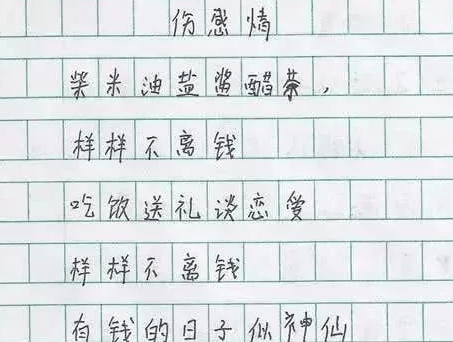 伤感情
柴米油盐酱醋茶，
样样不离钱
吃饭送礼谈恋爱
样样不离钱
有钱的日子似神仙